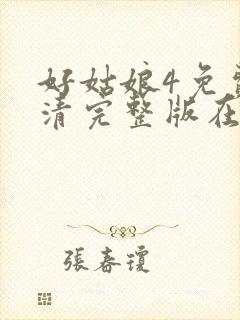 好姑娘4免费
清完整版在
張春瓊